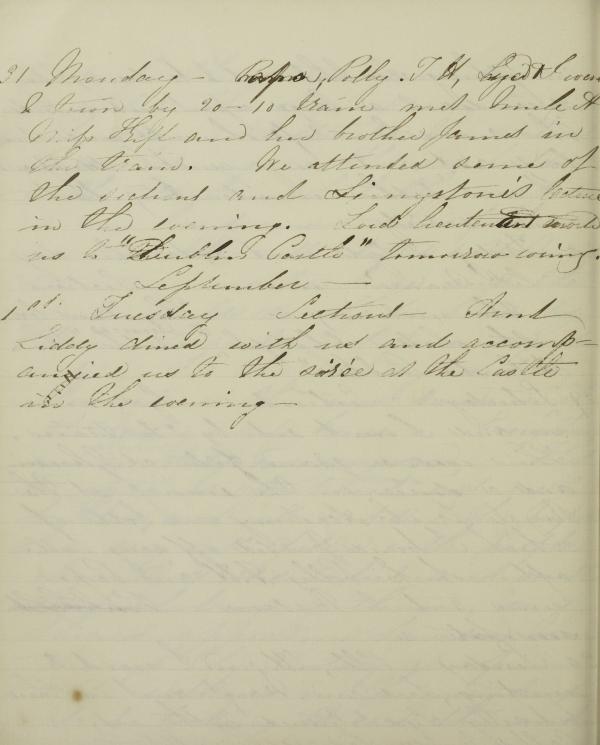 31 Monday — Papa, Polly. T H, Lyd & I went
to town by 20-10 train met Uncle A
Miss Hift and her brother James in
the train. We attended some of
the sections and Livingstone's lecture
in the evening. Lord lieutenant invite
us to "Dublin Castle" tomorrow evening.
September —
1st. Tuesday Sections — Aunt
Liddy dined with us and accomp=
anied us to the soirée at the Castle
in the evening —